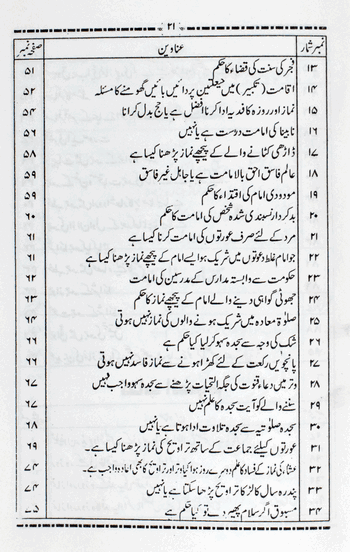 ۲۱
نمبر شمار عناوین صفحہ نمبر
۱۳ فجر کی سنت کی قضاء کا حکم ۵۱
۱۴ اقامت (تکبیر) میں حیعلتین پر دائیں بائیں گھومنے کا مسئلہ ۵۲
۱۵ نماز اور روزہ کا فدیہ ادا کرنا افضل ہے یا حج بدل کرانا ۵۴
۱۶ نابینا کی امامت درست ہے یا نہیں ۵۶
۱۷ ڈاڑھی کٹانے والے کے پیچھے نماز پڑھنا کیسا ہے ۵۸
۱۸ عالم فاسق احق بالامامت ہے یا جاہل غیر فاسق ۵۹
۱۹ مودودی امام کی اقتداء کا حکم ۵۹
۲۰ بدکردار نسبندی شدہ شخص کی امامت کا حکم ۶۰
۲۱ مرد کے لئے صرف عورتوں کی امامت کرنا کیسا ہے ۶۱
۲۲ جو امام غلط دعوتوں میں شریک ہو ایسے امام کے پیچھے نماز پڑھنا کیسا ہے ۶۱
۲۳ حکومت سے وابستہ مدارس کے مدرسین کی امامت ۶۲
۲۴ جھوٹی گواہی دینے والے امام کے پیچھے نماز کا حکم ۶۳
۲۵ صلوٰۃ معادہ میں شریک ہونے والوں کی نماز نہیں ہوتی ۶۴
۲۶ شک کی وجہ سے سجدہ سہو کر لیا کیا حکم ہے ۶۶
۲۷ پانچویں رکعت کے لئے کھڑا ہونے سے نماز فاسد نہیں ہوتی ۶۶
۲۸ وتر میں دعاء قنوت کی جگہ التحیات پڑھنے سے سجدہ سہو واجب نہیں ۶۷
۲۹ سننے والے کو آیت سجدہ کا علم نہیں ۶۷
۳۰ سجدہ صلوتیہ سے سجدہ تلاوت ادا ہوتا ہے یا نہیں ۶۸
۳۱ عورتوں کیلئے جماعت کے ساتھ تراویح کی نماز پڑھنا کیسا ہے۔ ۶۹
۳۲ عشاء کی نماز کے فساد کا علم دوسرے روز ہوا کیا وتر اور تراویح کا بھی اعادہ واجب ہے۔ ۷۴
۳۳ پندرہ سال کا لڑکا تراویح پڑھا سکتا ہے یا نہیں ۷۴
۳۴ مسبوق اگر سلام پھیر دے تو کیا حکم ہے ۷۵